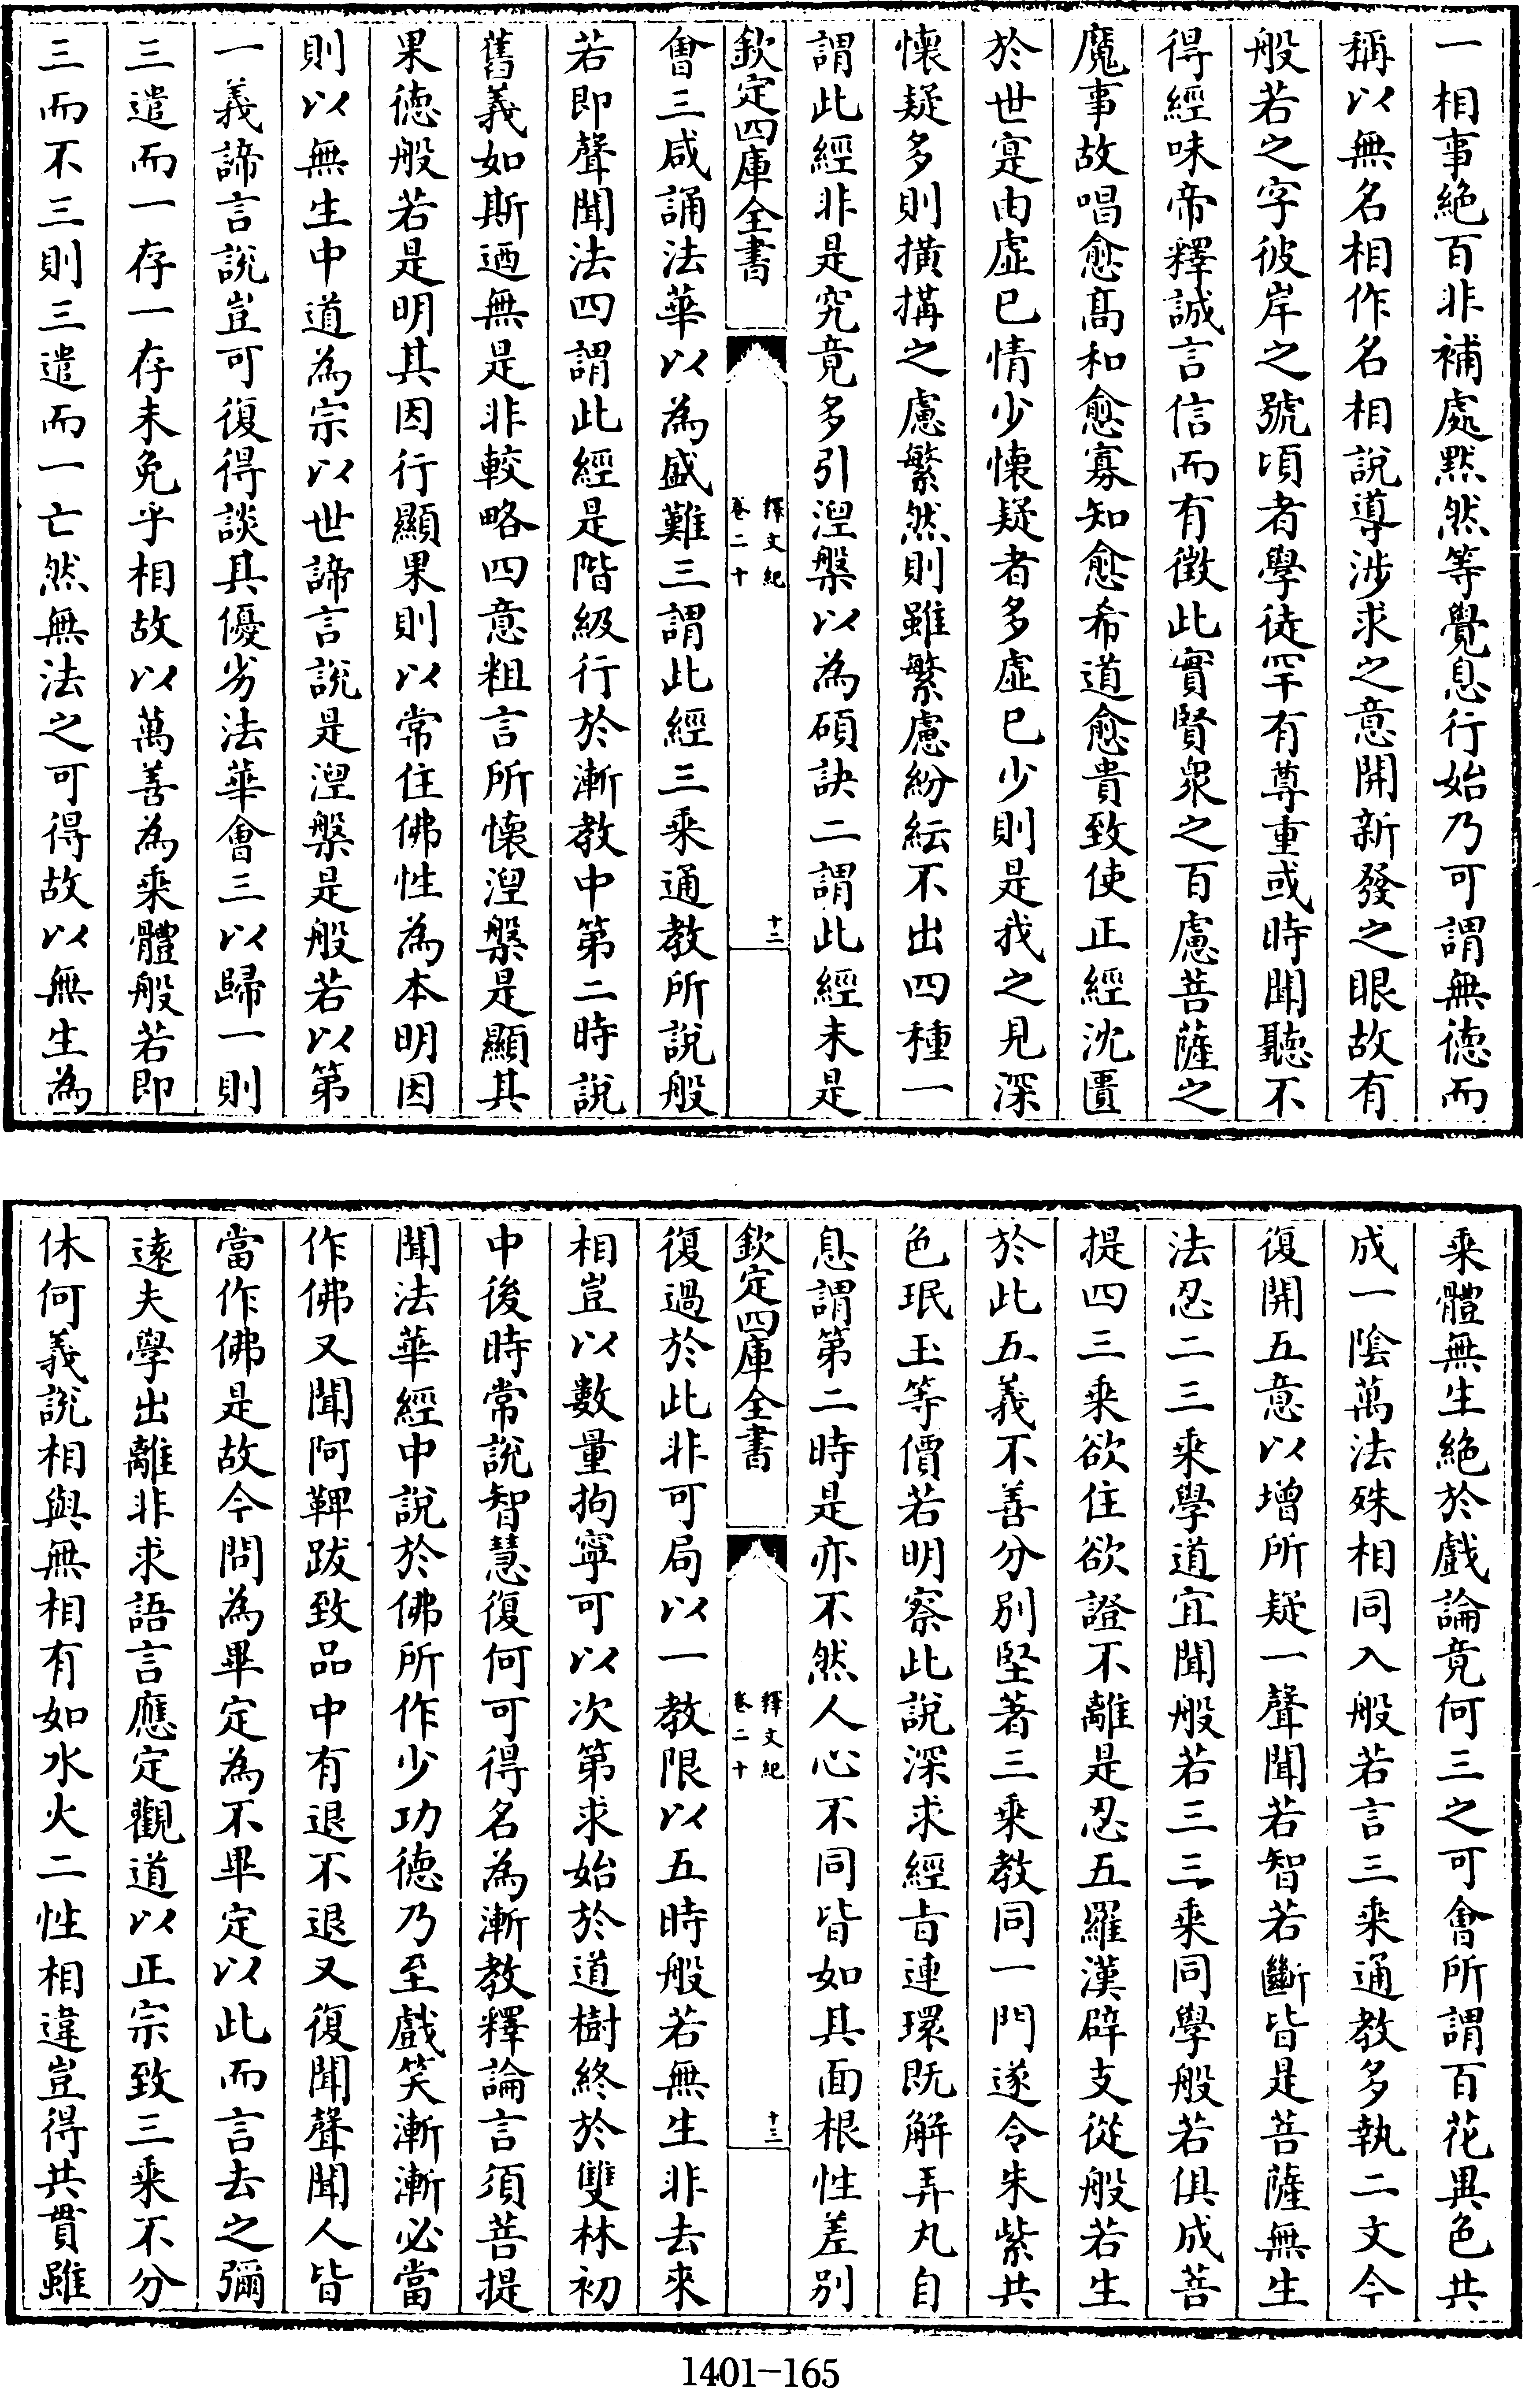 一相事絶百非補處黙然等覺息行始乃可謂無徳而
稱以無名相作名相說導涉求之意開新發之眼故有
般若之字彼岸之號頃者學徒罕有尊重或時聞聽不
得經味帝釋誠言信而有徴此實賢衆之百慮菩薩之
魔事故唱愈髙和愈寡知愈希道愈貴致使正經沈匱
於世寔由虛已情少懐疑者多虛已少則是我之見深
懐疑多則橫搆之慮繁然則雖繁慮紛紜不出四種一
謂此經非是究竟多引湼槃以為碩訣二謂此經未是
欽定四庫全書
釋文紀
卷二十
十二
會三咸誦法華以為盛難三謂此經三乘通教所說般
若即聲聞法四謂此經是階級行於漸教中第二時說
舊義如斯迺無是非較略四意粗言所懐湼槃是顯其
果徳般若是明其因行顯果則以常住佛性為本明因
則以無生中道為宗以世諦言說是湼槃是般若以第
一義諦言說豈可復得談其優劣法華會三以歸一則
三遣而一存一存未免乎相故以萬善為乘體般若即
三而不三則三遣而一亡然無法之可得故以無生為
乘體無生絶於戲論竟何三之可會所謂百花異色共
成一陰萬法殊相同入般若言三乘通教多執二文今
復開五意以增所疑一聲聞若智若斷皆是菩薩無生
法忍二三乘學道宜聞般若三三乘同學般若俱成菩
提四三乘欲住欲證不離是忍五羅漢辟支從般若生
於此五義不善分別堅著三乘教同一門遂令朱紫共
色珉玉等價若明察此說深求經㫖連環既解弄丸自
息謂第二時是亦不然人心不同皆如其面根性差別
欽定四庫全書
釋文紀
卷二十
十三
復過於此非可局以一教限以五時般若無生非去來
相豈以數量拘寧可以次第求始於道樹終於雙林初
中後時常說智慧復何可得名為漸教釋論言須菩提
聞法華經中說於佛所作少功徳乃至戲笑漸漸必當
作佛又聞阿鞞跋致品中有退不退又復聞聲聞人皆
當作佛是故今問為畢定為不畢定以此而言去之彌
遠夫學出離非求語言應定觀道以正宗致三乘不分
休何義說相與無相有如水火二性相違豈得共貫雖
1401-165